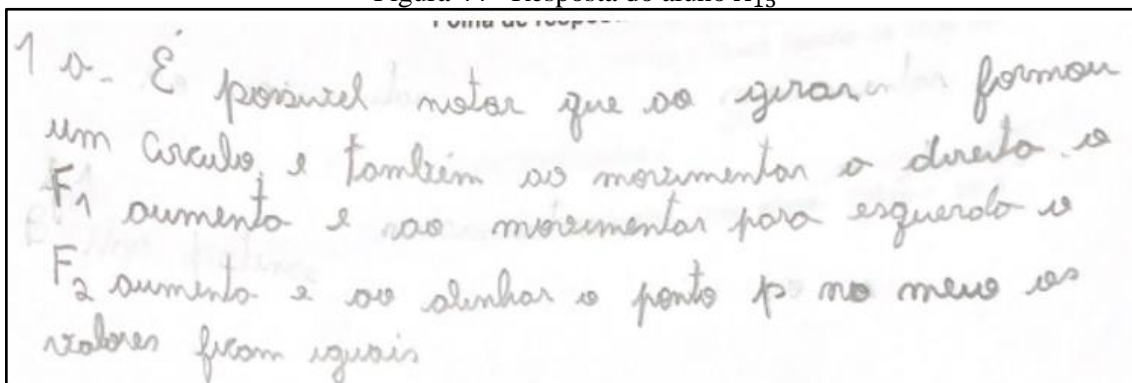 Figura 44 - Resposta do aluno A15
Folha de respos
1 a- É possivel notar que ao girar formou
um circulo, e também ao movimentar a direita o
F1 aumenta e ao movimentar para esquerda o
F2 aumenta e ao alinhar o ponto p no meio os
valores ficam iguais